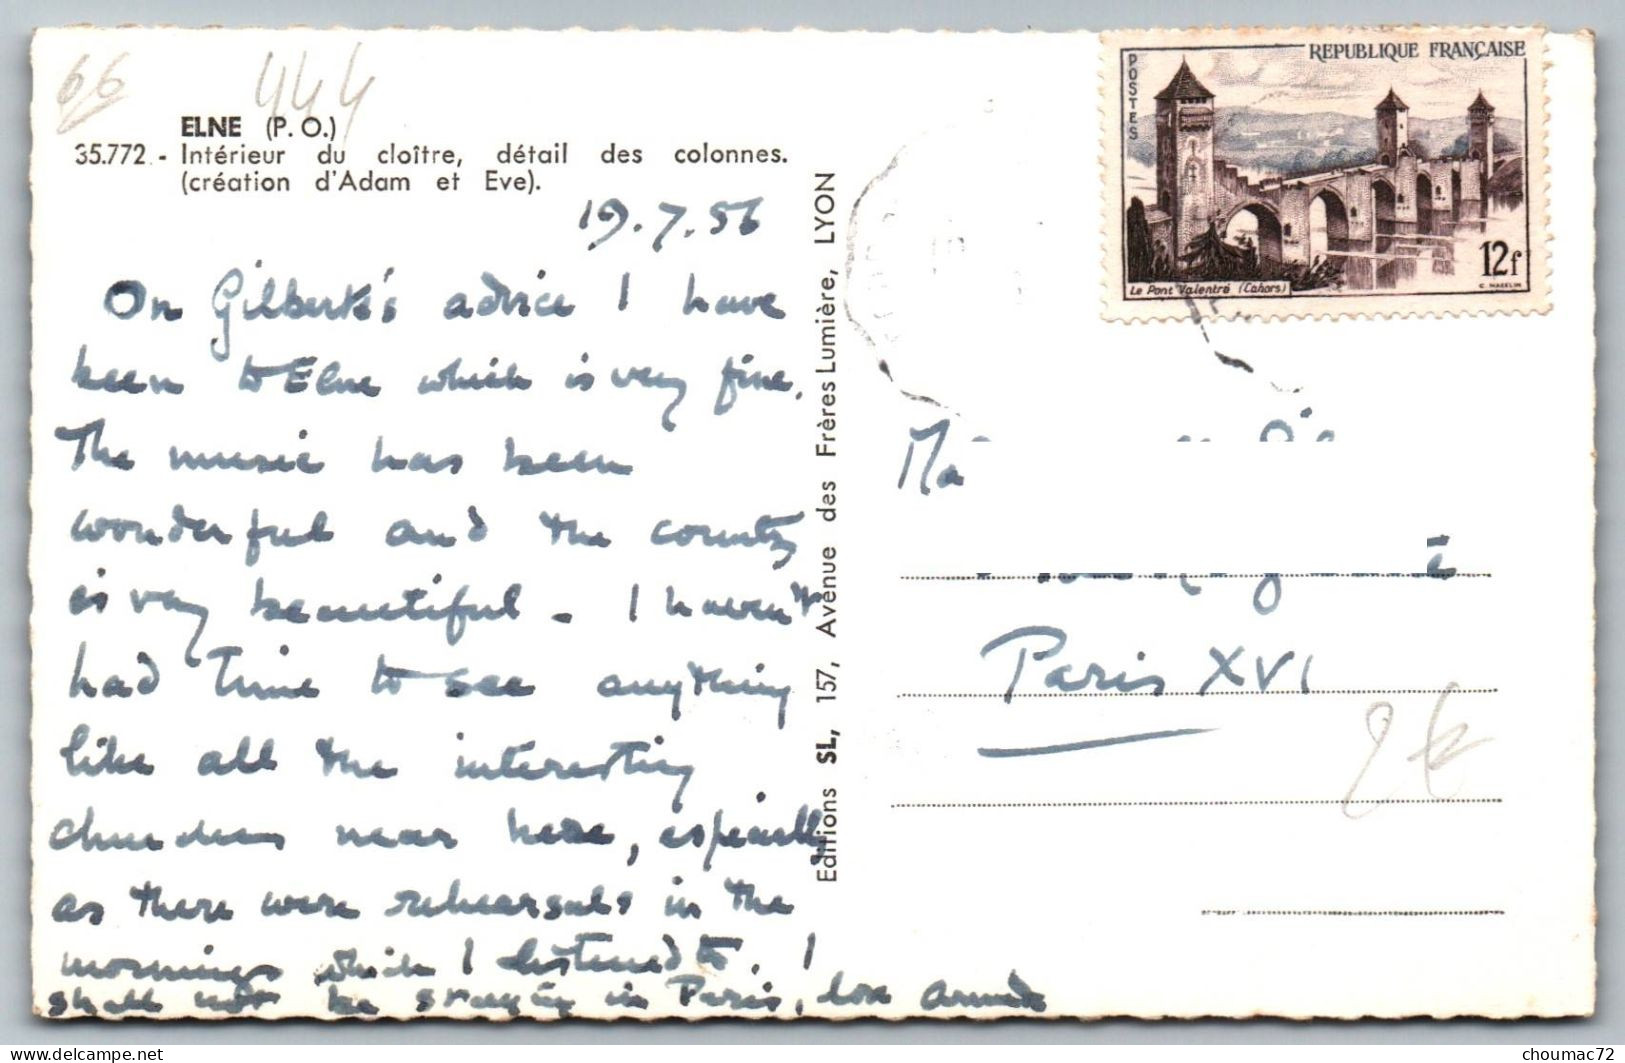 66 444
ELNE (P. O.)
35.772 - Intérieur du cloître, détail des colonnes.
(création d'Adam et Eve).
19.7.56
On Gilberte's advice I have
been to Elne which is very fine.
The music has been
wonderful and the country
is very beautiful - I haven't
had time to see anything
like all the interesting
churches near here, especially
as there were rehearsals in the
mornings which I listened to. I
shall not be staying in Paris, love
Editions SL, 157, Avenue des Frères Lumière, LYON
POSTES
REPUBLIQUE FRANÇAISE
12f
Le Pont Valentré (Cahors)
Ma
Paris XVI
2€
choumac72